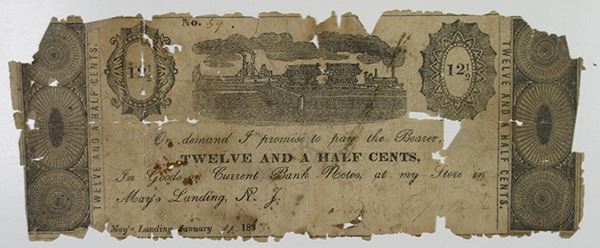 No. 59.
12½
12½
TWELVE AND A HALF CENTS.
TWELVE AND A HALF CENTS.
On demand I promise to pay the Bearer,
TWELVE AND A HALF CENTS,
In Goods or Current Bank Notes, at my Store in
May's Landing, N. J.
May's Landing January 183